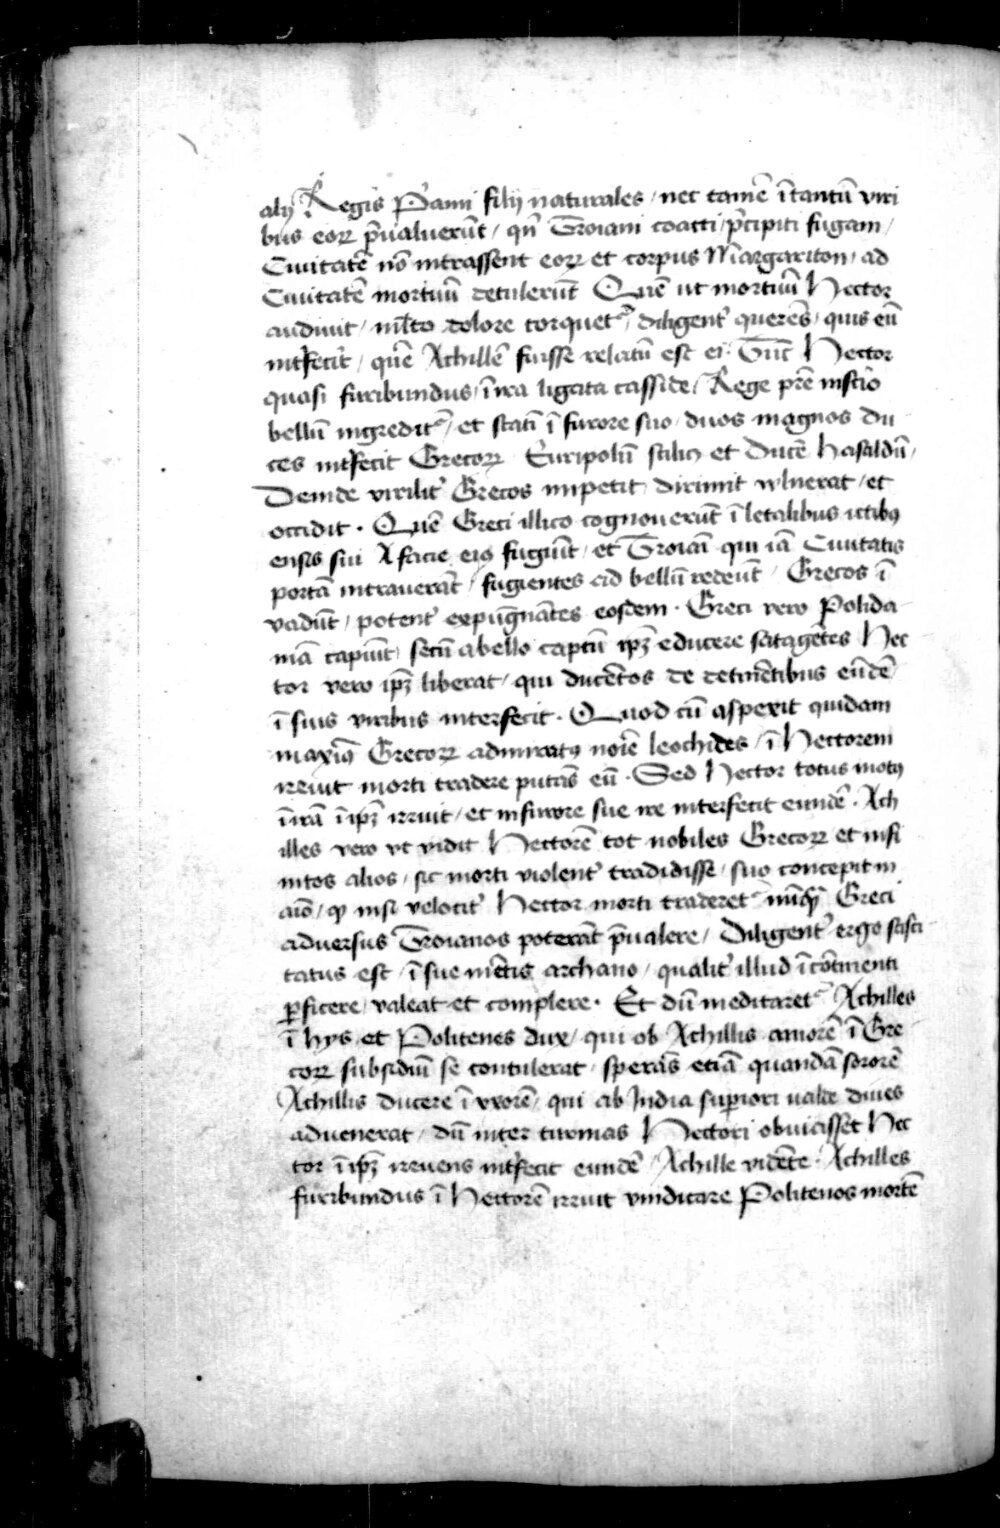 alij Regis Pami filij naturales / nec tamē ītantū viri
bus eoꝝ p̄ualuerūt / qn̄ Troiani coacti / p̄cipiti fugam /
Ciuitatē nō intrassent eoꝝ et corpus Margariton / ad
Ciuitatē mortuū detulerūt Quē ut mortuū Hector
audiuit / ml̄to dolore torquet᷑ / diligent᷑ querēs / quis eū
int᷑fecit / quē Achillē fuisse relatū est ei · Tūc Hector
quasi furibundus / ī ira ligata casside / Rege p̄re inscio
bellū ingredit᷑ / et statī ī furore suo / duos magnos du
ces int᷑fecit Grecoꝝ Euripolū scilicꝫ et Ducē hasaldū /
Deinde virilit᷑ Grecos impetit dirimit vlnerat / et
occidit · Quē Greci illico cognouerūt ī letalibus ictibꝰ
ensis sui A facie eiꝰ fugiūt / et Troiāi qui iā Ciuitatis
portā intrauerāt / fugientes ad bellū redeūt / Grecos ī
vadūt / potent᷑ expūgnātes eosdem · Greci vero Polida
mā capiūt / secū abello captū ip̄ꝫ educere satagētes Hec
tor vero ip̄ꝫ liberat / qui ducētos de detinētibus eūdē
ī suis viribus interfecit · Quod cū aspexit quidam
maxīꝰ Grecoꝝ admiratꝰ noīe leochides / ī Hectorem
irruit morti tradere putās eū · Sed Hector totus motꝰ
ī irā ī ip̄ꝫ irruit / et infurore sue ire interfecit eundē · Ach
illes vero vt vidit Hectorē tot nobiles Grecoꝝ et infi
nitos alios / sic morti violent᷑ tradidisse / suo concepit in
aīo / ꝙ nisi velocit᷑ Hector morti traderet᷑ nūqꝫ Greci
aduersus Troianos poterāt p̄ualere / Diligent᷑ ergo scisci
tatus est / ī sue mētis archano / qualit᷑ illud īcōtinenti
ꝑficere / valeat et complere · Et dū meditaret᷑ Achilles
ī hys et Politenes dux / qui ob Achillis amorē ī Gre
coꝝ subsidiū se contulerat / sperās etiā quandā sororē
Achillis ducere ī vxorē / qui ab India suꝑiori valde diues
aduenerat / dū inter turmas Hectori obuiasset Hec
tor ī ip̄ꝫ irruens int᷑fecit eundē / Achille vidēte · Achilles
furibundus ī Hectorē irruit vindicare Politenos mortē